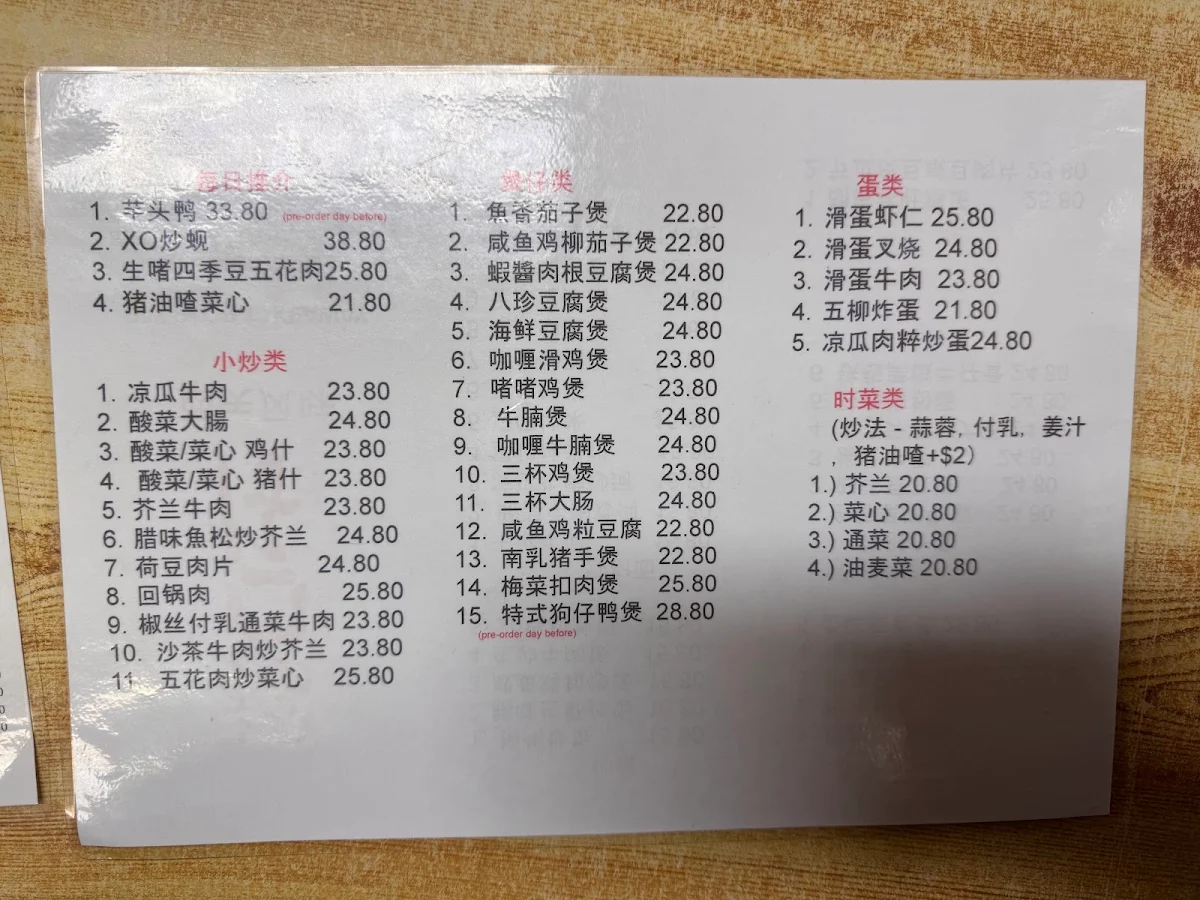 每日推介
1. 芋头鸭 33.80 (pre-order day before)
2. XO炒蚬 38.80
3. 生啫四季豆五花肉25.80
4. 猪油喳菜心 21.80
小炒类
1. 凉瓜牛肉 23.80
2. 酸菜大腸 24.80
3. 酸菜/菜心 鸡什 23.80
4. 酸菜/菜心 猪什 23.80
5. 芥兰牛肉 23.80
6. 腊味魚松炒芥兰 24.80
7. 荷豆肉片 24.80
8. 回锅肉 25.80
9. 椒丝付乳通菜牛肉 23.80
10. 沙茶牛肉炒芥兰 23.80
11. 五花肉炒菜心 25.80
煲仔类
1. 魚香茄子煲 22.80
2. 咸鱼鸡柳茄子煲 22.80
3. 蝦醬肉根豆腐煲 24.80
4. 八珍豆腐煲 24.80
5. 海鲜豆腐煲 24.80
6. 咖喱滑鸡煲 23.80
7. 啫啫鸡煲 23.80
8. 牛腩煲 24.80
9. 咖喱牛腩煲 24.80
10. 三杯鸡煲 23.80
11. 三杯大肠 24.80
12. 咸鱼鸡粒豆腐 22.80
13. 南乳猪手煲 22.80
14. 梅菜扣肉煲 25.80
15. 特式狗仔鸭煲 28.80
(pre-order day before)
蛋类
1. 滑蛋虾仁 25.80
2. 滑蛋叉烧 24.80
3. 滑蛋牛肉 23.80
4. 五柳炸蛋 21.80
5. 凉瓜肉粹炒蛋24.80
时菜类
(炒法 - 蒜蓉, 付乳, 姜汁
, 猪油喳+$2）
1.) 芥兰 20.80
2.) 菜心 20.80
3.) 通菜 20.80
4.) 油麦菜 20.80